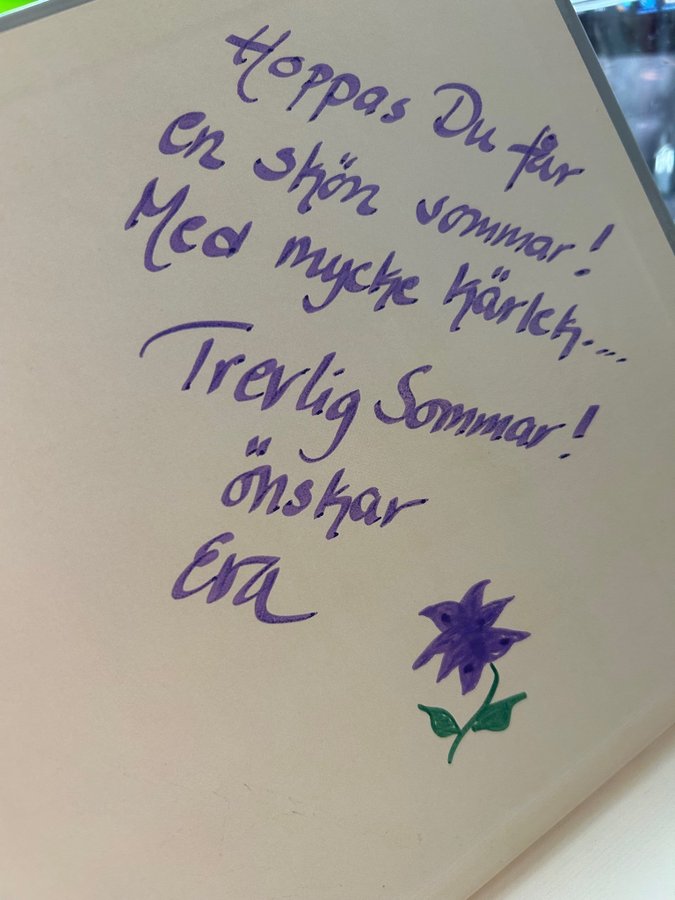 Hoppas Du får
en skön sommar!
Med mycke kärlek...
Trevlig Sommar!
önskar
Eva